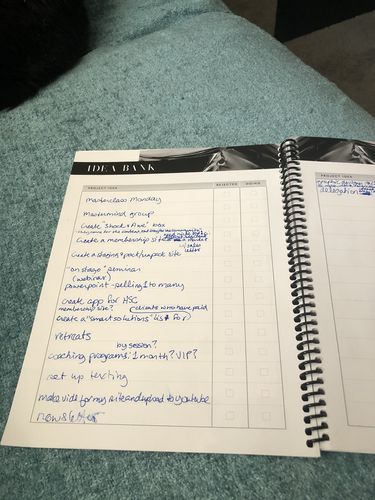 IDEA BANK
PROJECT IDEA REJECTED DOING
Masterclass Monday
Mastermind group
Create "Shock & Awe" box
Create a membership site
w/ sales
letter
Create a staging & pack/unpack site
"on stage" seminar
(webinar)
powerpoint - selling 1 to many
Create app for HSC
membership site? (clients who have paid
Create a "smart solutions" list for)
retreats
by session?
coaching programs: 1 month? VIP?
set up texting
make vids for my site and upload to youtube
newsletter
PROJECT IDEA
delegation